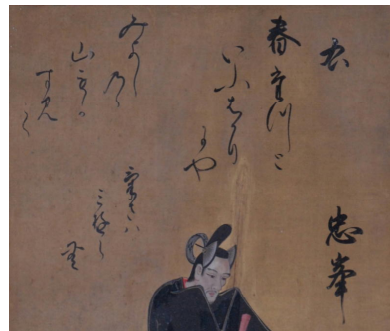 右　忠峯
春たつと
いふはかり
にや
みよし
乃ゝ
山もか
すみて
けさハ
みゆら
無